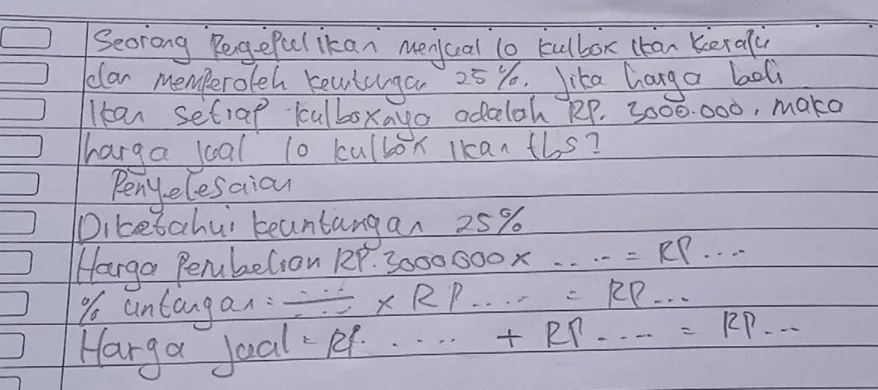 Seorang Pengepul ikan menjual 10 kulbox ikan Kerapu
dan memperoleh keuntungan 25%. Jika harga beli
Ikan setiap kulboxnya adalah RP. 3000.000, maka
harga jual 10 kulbox ikan tbs?
Penyelesaian
Diketahui keuntungan 25%
Harga Pembelian RP. 3000000 x ..... = RP ....
% untungan = ...... x RP ..... = RP ...
Harga jual = RP. ..... + RP ..... = RP ...